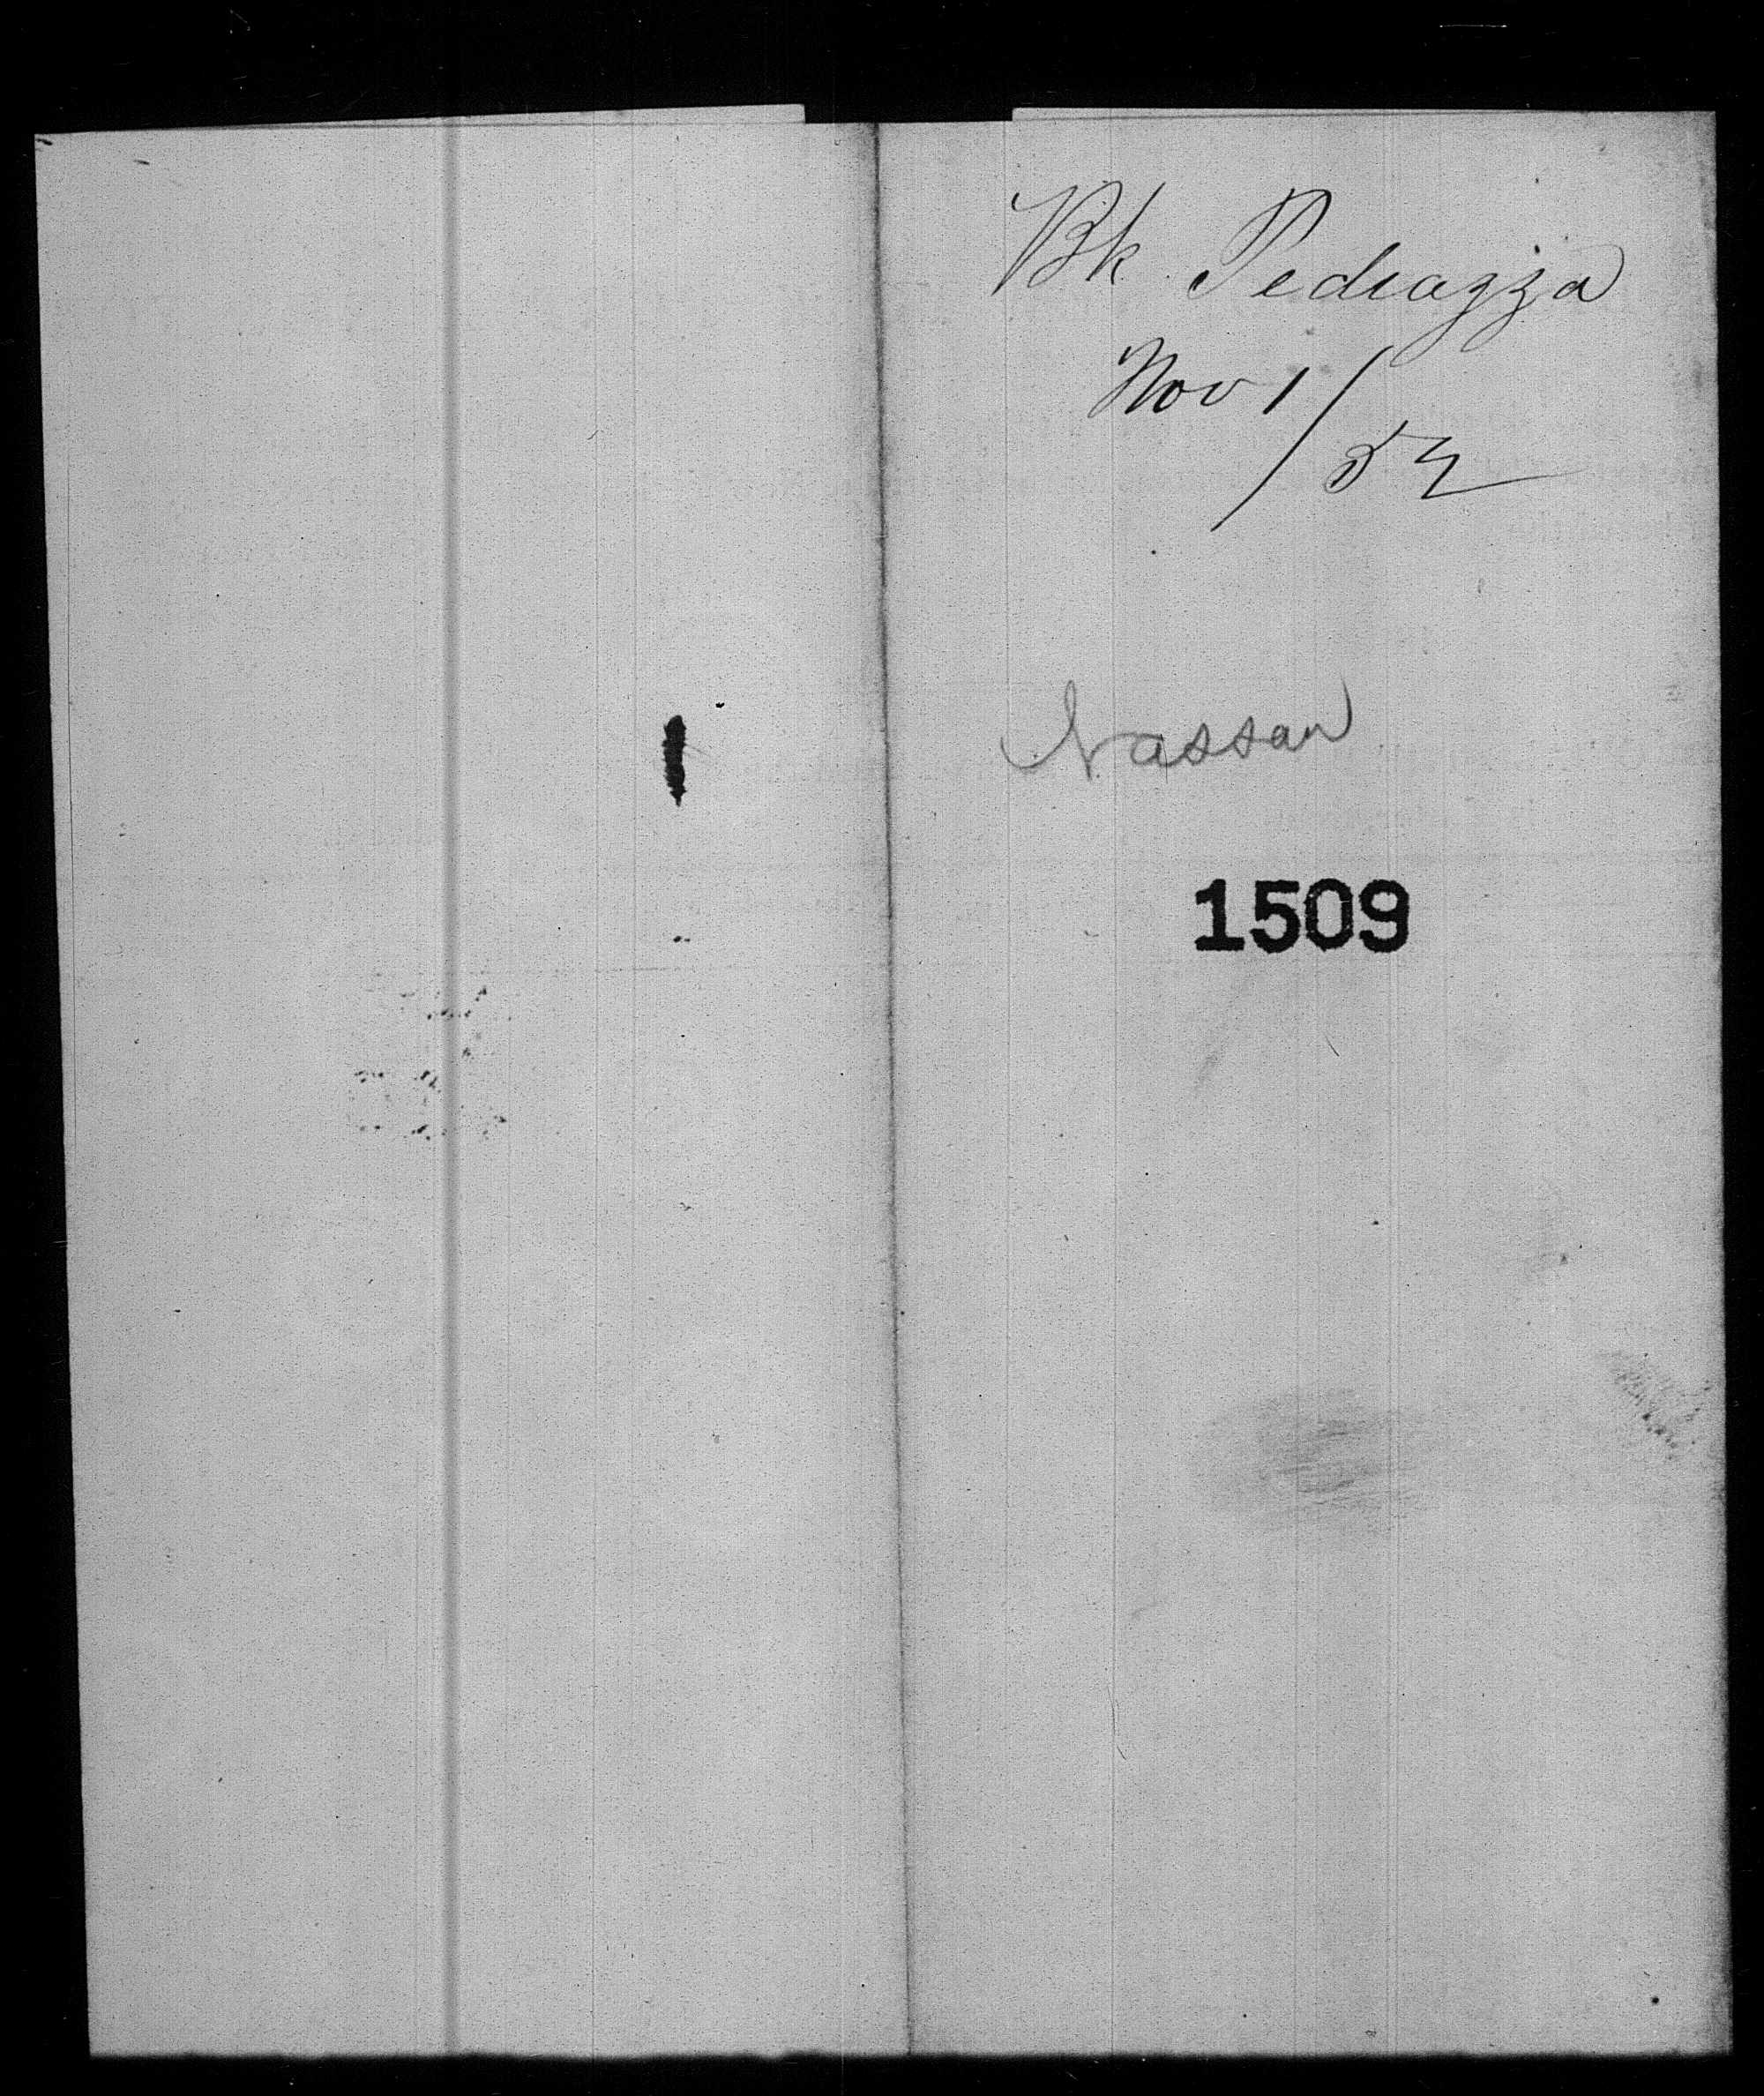 Bk Pedrazza
Nov 1/52
Nassau
1509